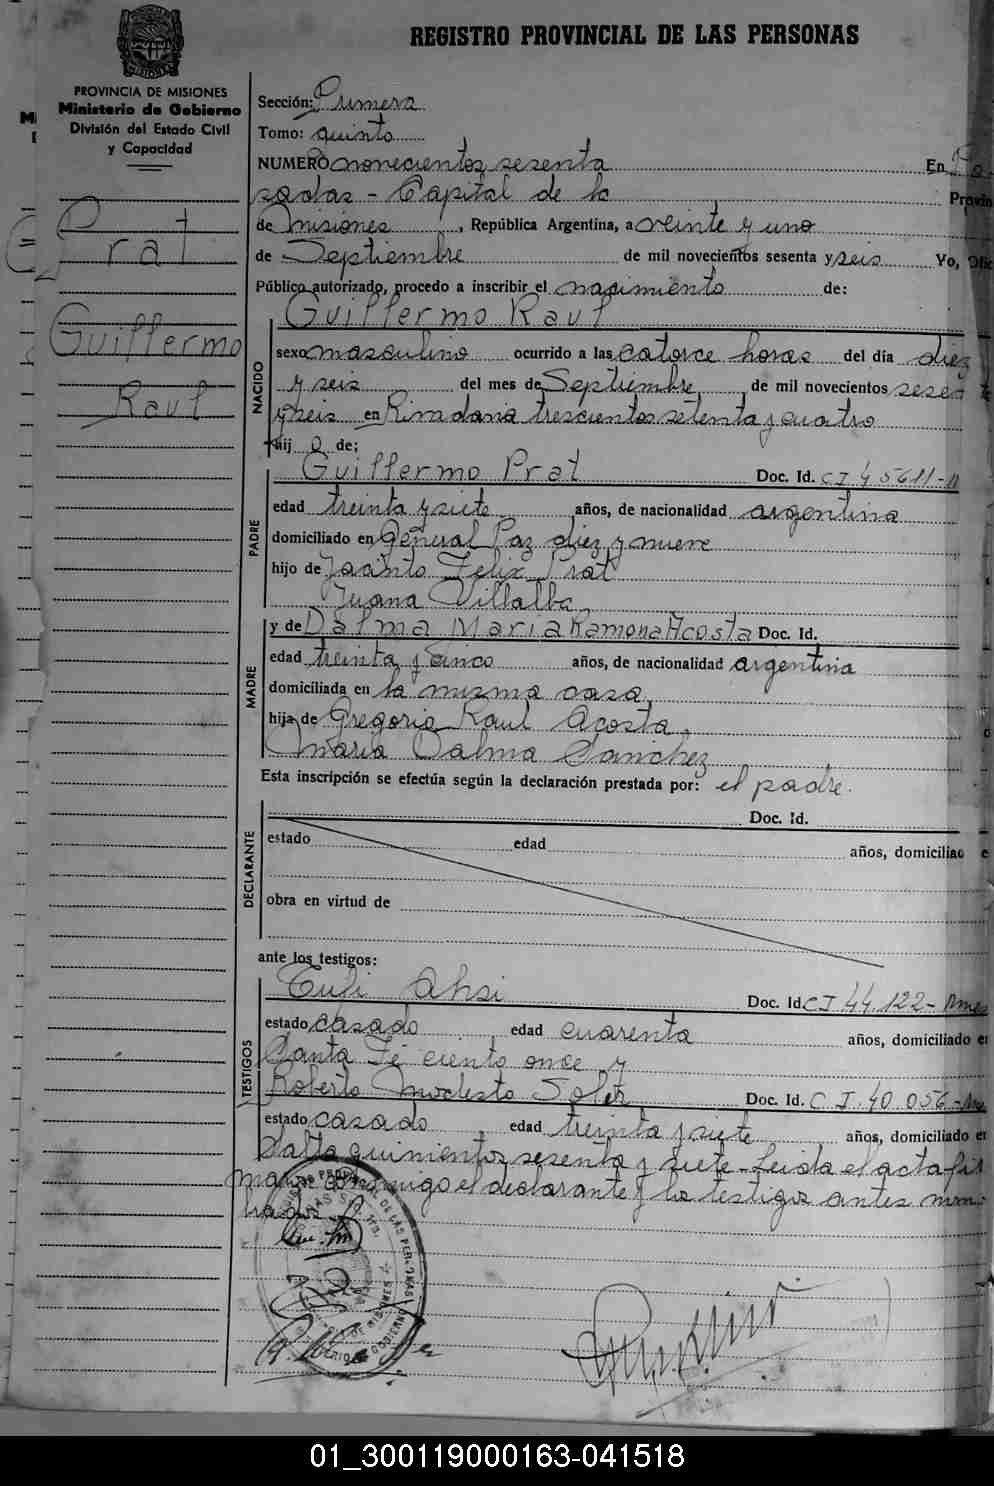 REGISTRO PROVINCIAL DE LAS PERSONAS
PROVINCIA DE MISIONES
Ministerio de Gobierno
División del Estado Civil
y Capacidad
Prat
Guillermo
Raul
Sección: Primera
Tomo: quinto
NUMERO novecientos sesenta En Po-
sadas - Capital de la Provin
de Misiones, República Argentina, a veinte y uno
de Septiembre de mil novecientos sesenta y seis Yo, Ofic
Público autorizado, procedo a inscribir el nacimiento de:
Guillermo Raul
NACIDO
sexo masculino ocurrido a las catorce horas del día diez
y seis del mes de Septiembre de mil novecientos sesen
y seis en Rivadavia trescientos setenta y cuatro
hijo de:
PADRE
Guillermo Prat Doc. Id. CI 45611-
edad treinta y siete años, de nacionalidad argentina
domiciliado en General Paz diez y nueve
hijo de Jacinto Felix Prat
Juana Villalba
MADRE
y de Dalma Maria Ramona Acosta Doc. Id.
edad treinta y cinco años, de nacionalidad argentina
domiciliada en la misma casa
hija de Gregorio Raul Acosta
Maria Dalma Sanchez
Esta inscripción se efectúa según la declaración prestada por: el padre.
DECLARANTE
Doc. Id.
estado edad años, domiciliao e
obra en virtud de
ante los testigos:
TESTIGOS
Ahsi Doc. Id. CI 44.122- Mnes
estado casado edad cuarenta años, domiciliado en
Santa Fé ciento once y
Roberto Modesto Soler Doc. Id. C I. 40.056-
estado casado edad treinta y siete años, domiciliado en
Salta quinientos sesenta y siete - Leida el acta fir
man conmigo el declarante y los testigos antes nom
brados
01_300119000163-041518